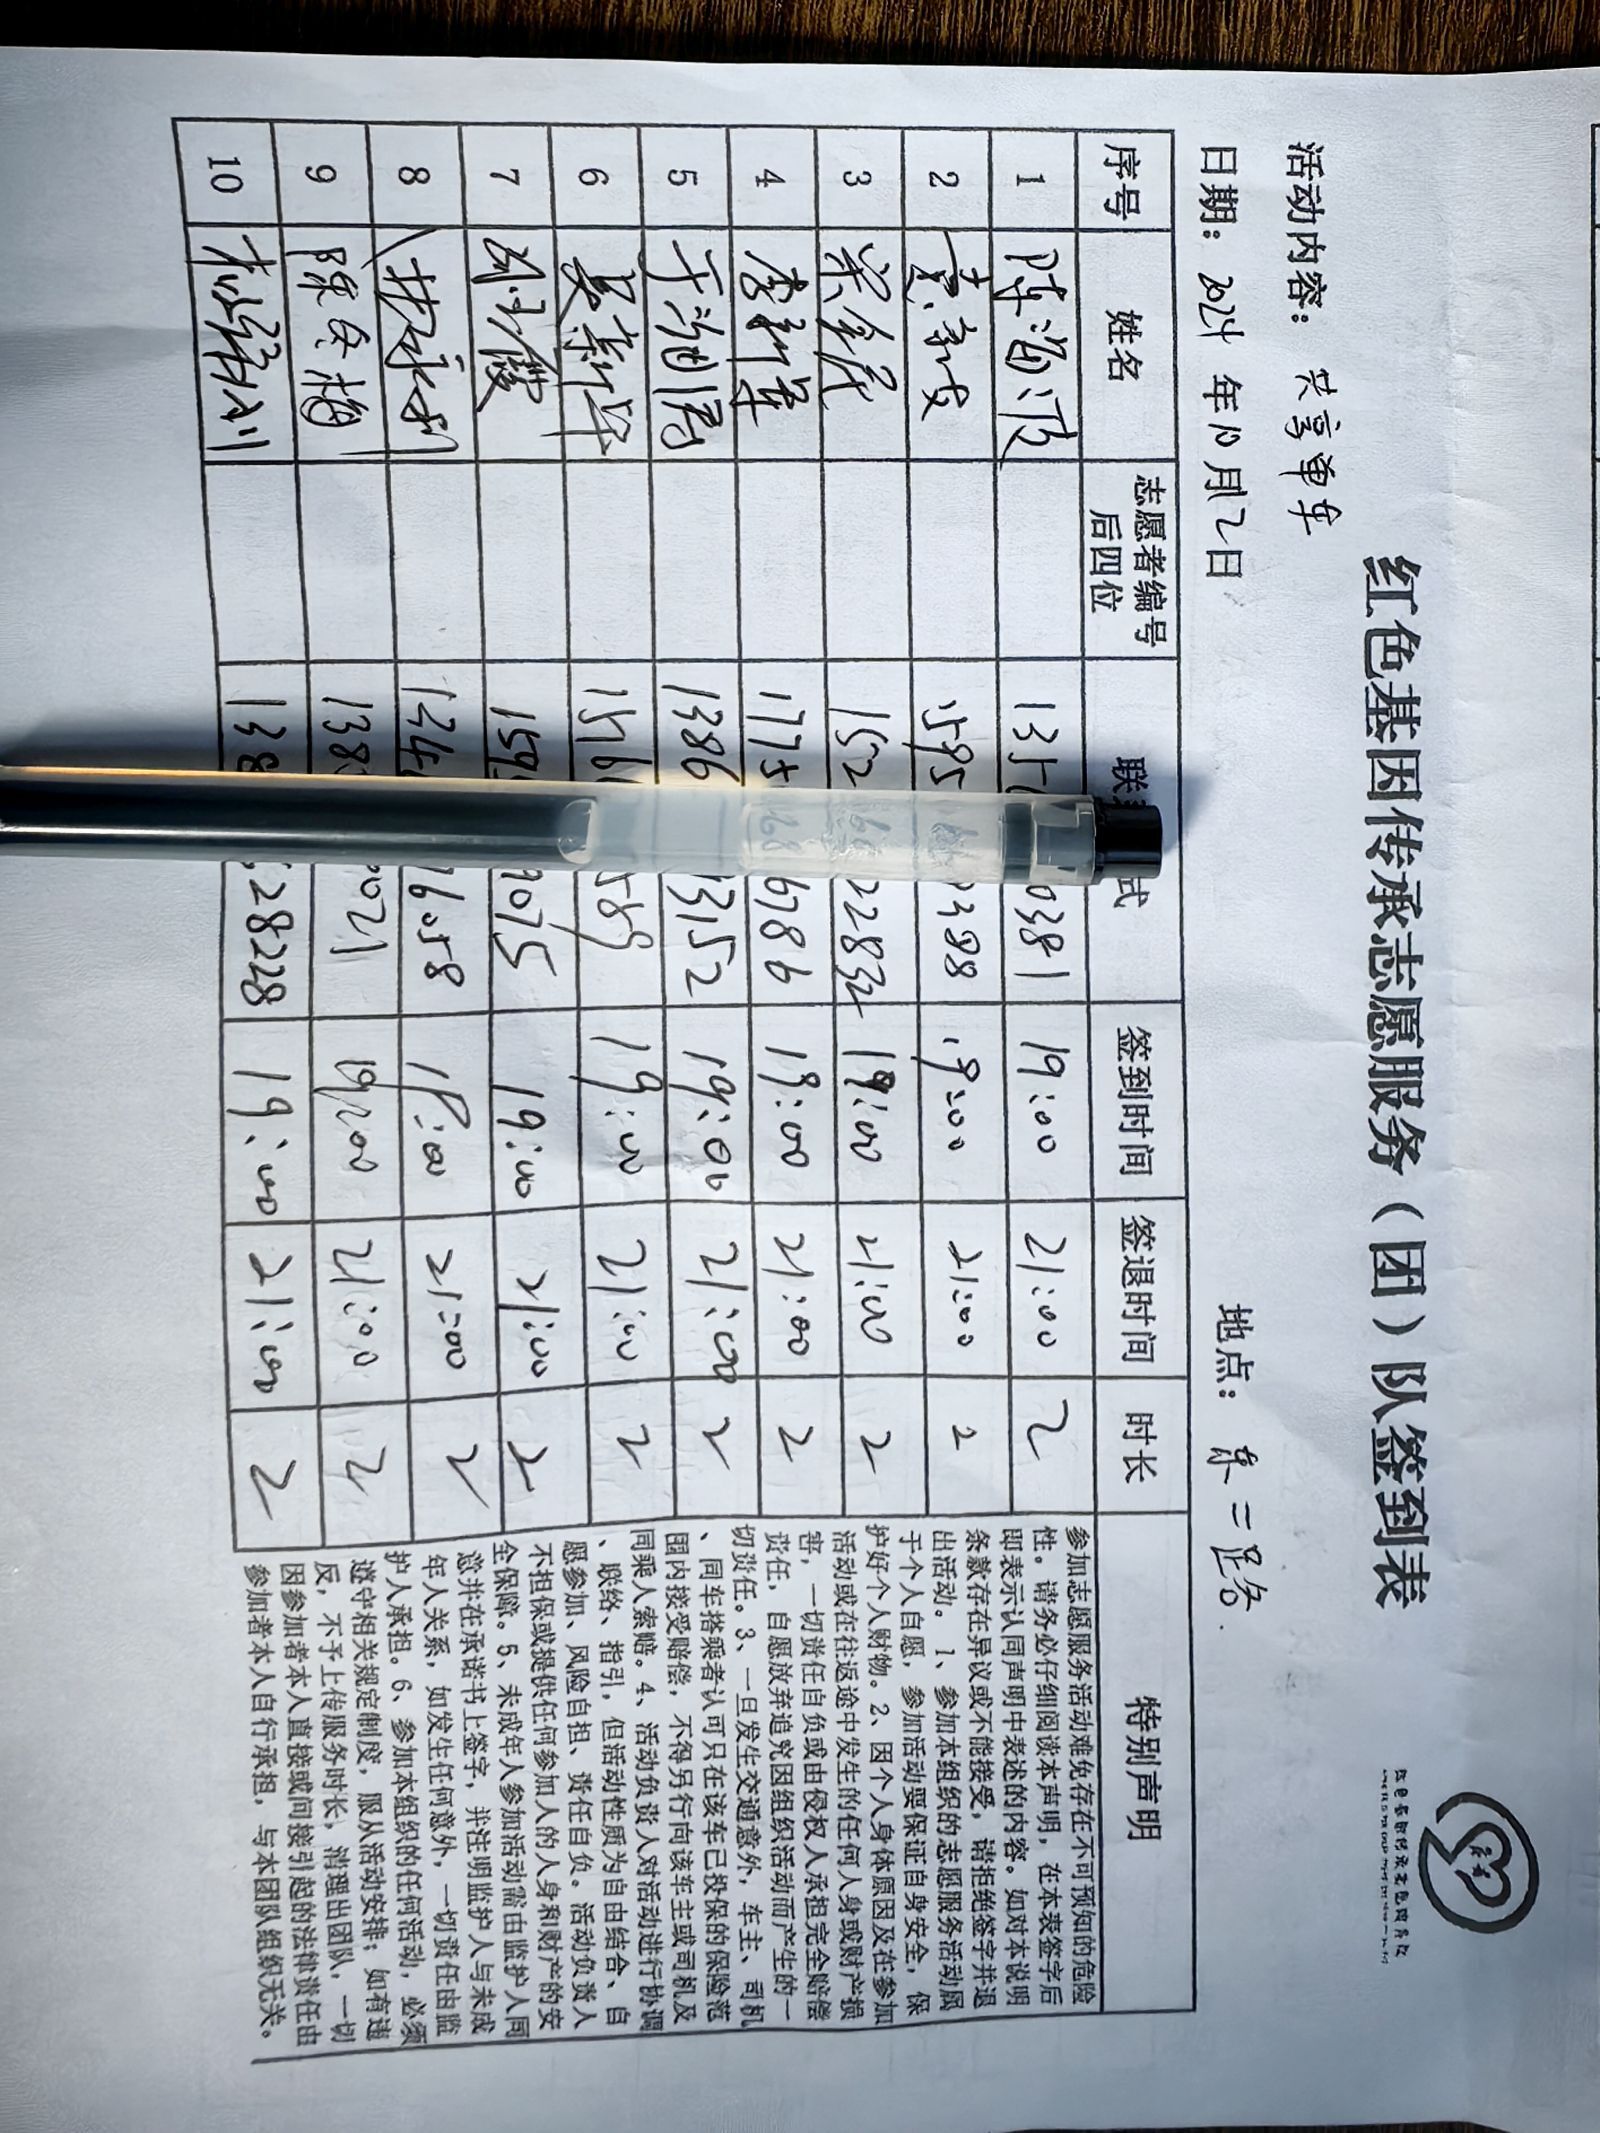 红色基因传承志愿服务（团）队签到表
活动内容：共享单车
日期：2024年10月12日 地点：东二路
序号 姓名 志愿者编号后四位 联 式 签到时间 签退时间 时长 特别声明
1 陈海波 0381 19:00 21:00 2
2 1595 19:00 21:00 2
3 152 19:00 21:00 2
4 李新华 1775 6786 19:00 21:00 2
5 1386 3152 19:00 21:00 2
6 19:00 21:00 2
7 159 9075 19:00 21:00 2
8 134 16058 19:00 21:00 2
9 陈冬梅 138 0021 19:00 21:00 2
10 138 28228 19:00 21:00 2
参加志愿服务活动难免存在不可预知的危险
性。请务必仔细阅读本声明，在本表签字后
即表示认同声明中表述的内容。如对本说明
条款存在异议或不能接受，请拒绝签字并退
出活动。1、参加本组织的志愿服务活动属
于个人自愿，参加活动要保证自身安全，保
护好个人财物。2、因个人身体原因及在参加
活动或在往返途中发生的任何人身或财产损
害，一切责任自负或由侵权人承担完全赔偿
责任，自愿放弃追究因组织活动而产生的一
切责任。3、一旦发生交通意外，车主、司机
、同车搭乘者认可只在该车已投保的保险范
围内接受赔偿，不得另行向该车主或司机及
同乘人索赔。4、活动负责人对活动进行协调
、联络、指引，但活动性质为自由结合、自
愿参加、风险自担、责任自负。活动负责人
不担保或提供任何参加人的人身和财产的安
全保障。5、未成年人参加活动需由监护人同
意并在承诺书上签字，并注明监护人与未成
年人关系，如发生任何意外，一切责任由监
护人承担。6、参加本组织的任何活动，必须
遵守相关规定制度，服从活动安排；如有违
反，不予上传服务时长，清理出团队，一切
因参加者本人直接或间接引起的法律责任由
参加者本人自行承担，与本团队组织无关。